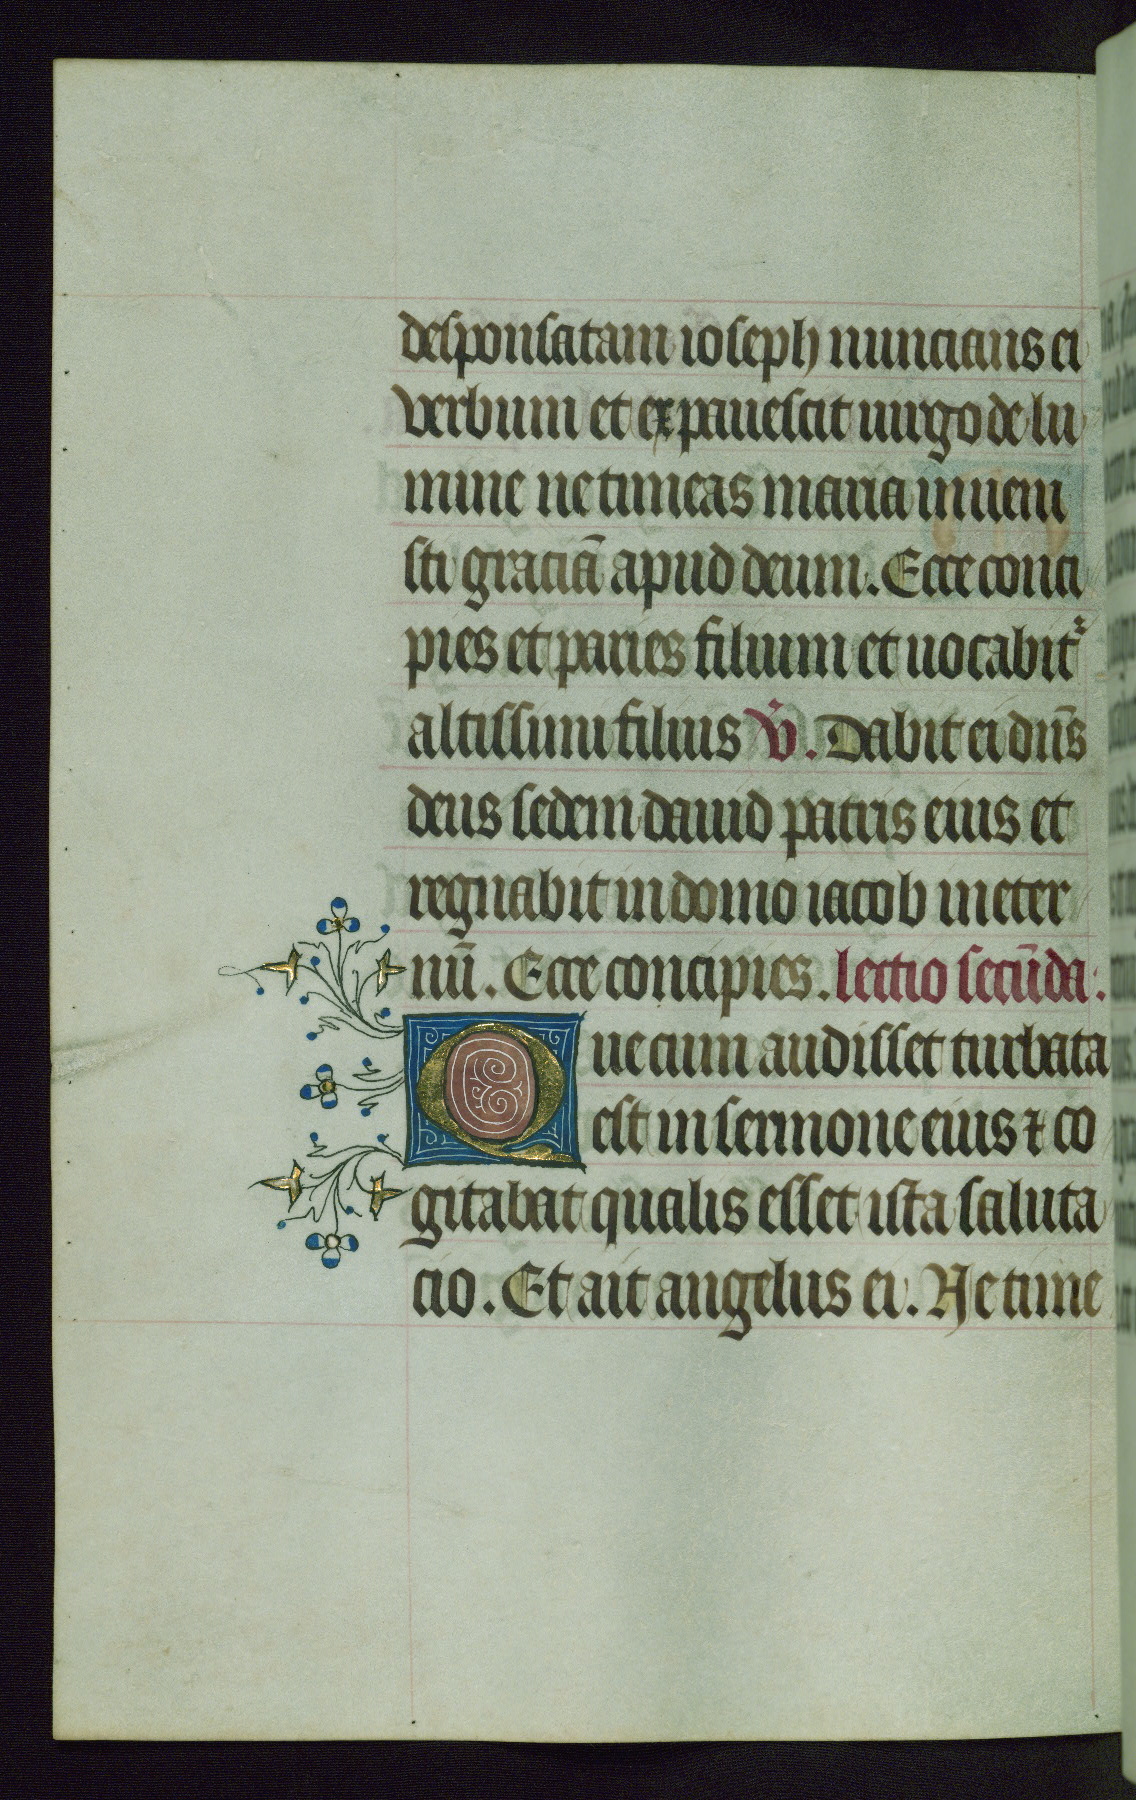 desponsatam ioseph nuncians ei
verbum et expauescit uirgo de lu
mine ne timeas maria inueni
sti graciā apud deum. Ecce conci
pies et paries filium et uocabit᷑
altissimi filius V̄. Dabit ei dn̄s
deus sedem dauid patris eius et
regn̄abit in domo iacob in eter
nū. Ecce concipies. lectio secūda:
Que cum audisset turbata
est in sermone eius ⁊ co
gitabat qualis esset ista saluta
cio. Et ait angelus ei. Ne time